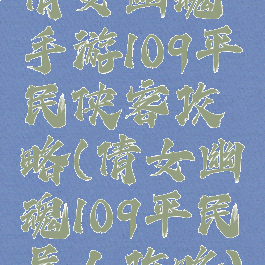 倩女幽魂
手游109平
民侠客攻
略(倩女幽
魂109平民